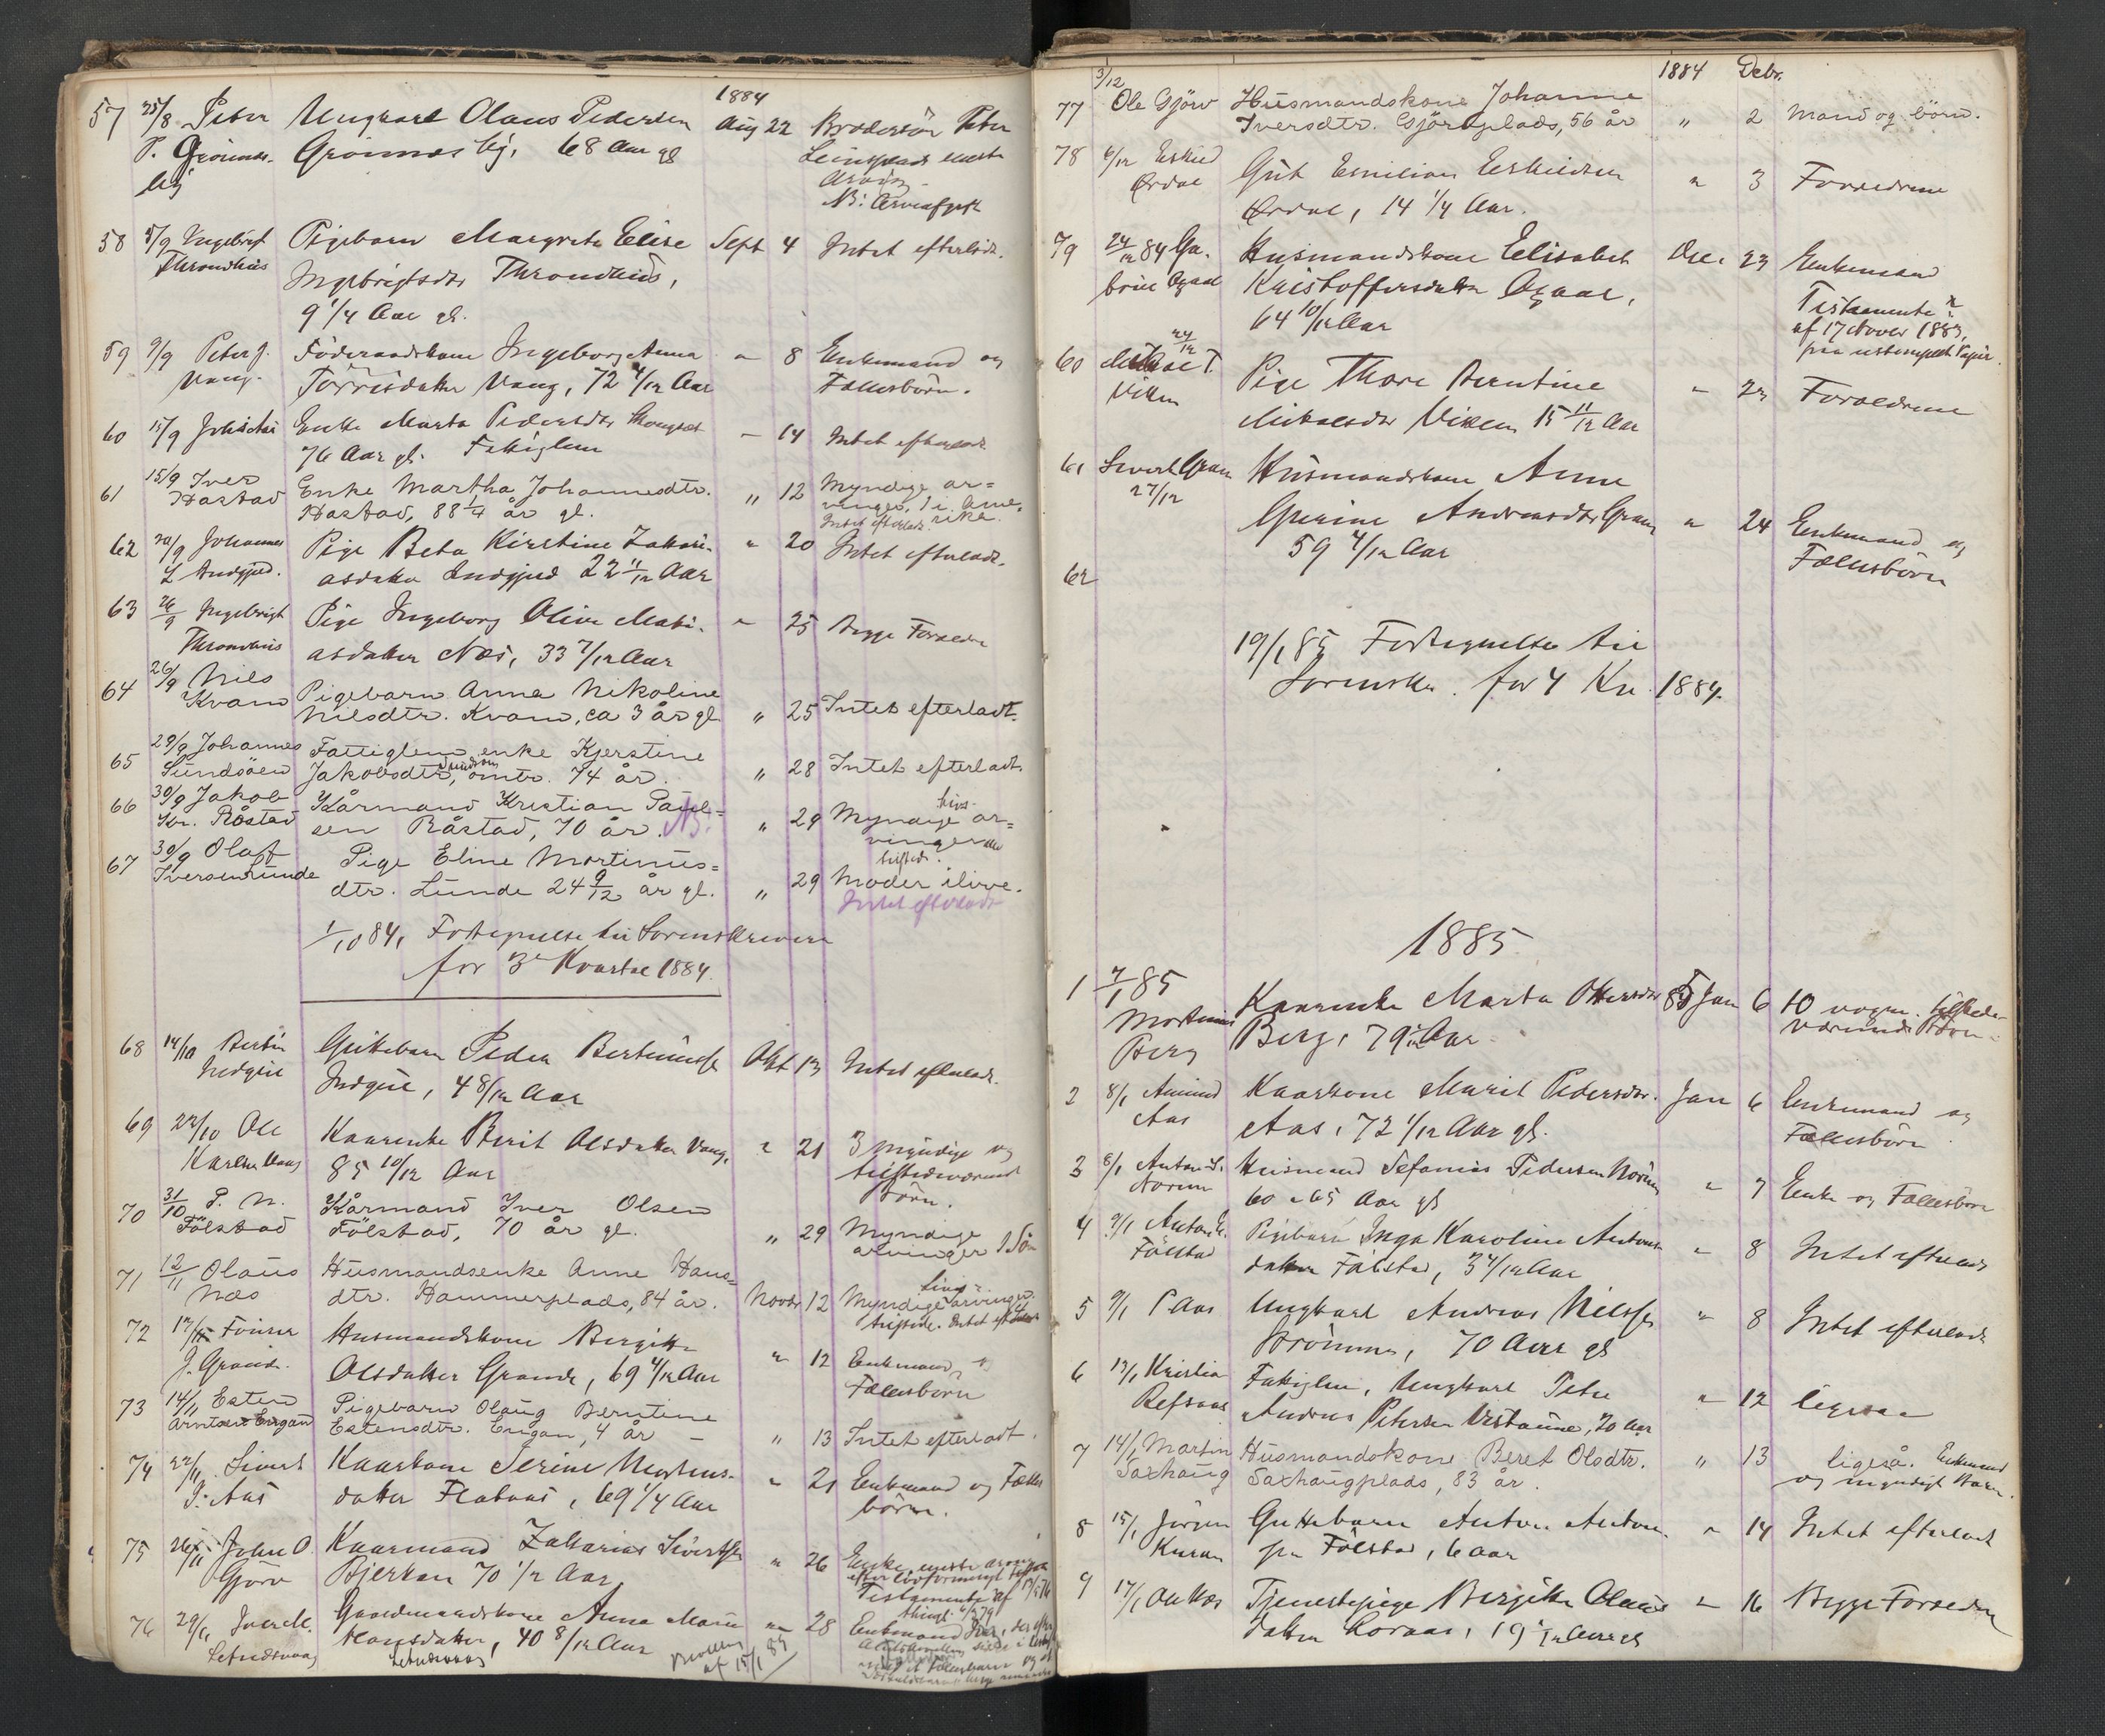 1884
57 25/8 Peter Ungkarl Olaus Pedersen Aug 22 Brodersön Peter
P. Grönnes- Grönnesby, 68 Aar gl eneste
by Arving
N: Arveafgift
58 5/9 Ingebrigt Pigebarn Margrete Elise Sept 4 Intet efterladt.
Throndhus Ingebrigtsdtr Throndhus,
9 1/4 Aar gl.
59 9/9 Peter J. Föderaadskone Ingeborg Anna " 8 Enkemand og
Vang. Törrisdatter Vang, 72 4/12 Aar Fællesbörn.
60 15/9 Enke Marta Pedersdtr - 14 Intet efterladt
76 Aar gl. Fattiglem
61 15/9 Iver Enke Martha Johannesdtr. " 12 Myndige ar=
Hastad Hastad, 88 1/4 år gl. vinger, 1 i Ame-
Intet efterladt rika.
62 20/9 Johannes Pige Beta Kirstine Zakari- " 20 Intet efterladt.
Z Indgjerd. asdatter Indgjerd 22 11/12 Aar
63 26/9 Ingebrigt Pige Ingeborg Oline Mati- " 25 Begge Forældre
Throndhus asdatter Næs, 33 7/12 Aar
64 26/9 Nils Pigebarn Anna Nikoline
Kvam Nilsdtr. Kvam, ca 3 år gl " 25 Intet efterladt.
65 29/9 Johannes Fattiglem enke Kjerstine
Sundsöen Jakobsdtr, Sundsöen omtr. 74 år. " 28 Intet efterladt
66 30/9 Jakob Kårmand Kristian Paul= livs-
Kr. Råstad sen Råstad, 70 år. NB. " 29 Myndige ar=
vinger
67 30/9 Olaf Pige Eline Martinus= tilsted.
Iversen Lunde dtr. Lunde 24 9/12 år gl. " 29 Moder ilive.
Intet efterladt
1/10 84, Fortegnelse til Sorenskriveren
for 3 Kvartal 1884.
68 14/10 Bertin Guttebarn Peder Bertinuss. Okt 13 Intet efterladt.
Indgul Indgul, 4 8/12 Aar
69 22/10 Ole Kaarenke Berit Olsdatter Vang, " 21 3 myndige og
Karlsen Vang 85 10/12 Aar tilstedeværende
Börn.
70 31/10 P. N. Kårmand Iver Olsen
Fölstad Fölstad, 70 år gl. " 29 Myndige
arvinger 1 Sön
71 12/11 Olaus Husmandsenke Anne Hans= livs-
Næs dtr. Hammerplads, 84 år. Novbr 12 Myndige arvinger.
tilstede. Intet efterladt
72 12/11 Husmandskone Bergitte
J. Grande. Olsdatter Grande, 69 4/12 Aar " 12 Enkemand og
Fællesbörn
73 14/11 Esten Pigebarn Olaug Berntine
Arntsen Engan Estensdtr. Engan, 4 år - " 13 Intet efterladt.
74 22/11 Sivert Kaarkone Serine
P. Aas datter Flataas, 69 1/4 Aar " 21 Enkemand og Fælles
börn.
75 26/11 John O. Kaarmand Zakarias Sivertsen " 26 Enke eneste arving
Gjörv Bjerkan 70 1/2 Aar efter
Testamente af
76 29/11 Iver M. Gaardmandskone Anna Marie " 28 Enkemand
Letnesvaag Hansdatter, 40 8/12 Aar
Letnesvaag af 15/1 85
3/12 1884 Debr.
77 Ole Gjörv Husmandskone Johanne
Iversdtr. Gjörvplads, 56 år " 2 Mand og börn.
78 6/12 Eskild Gut Emilian Eskildsen " 3 Forældrene
Ördal Ördal, 14 1/4 Aar.
79 24/12 84 Ga- Husmandskone Elisabet Dec. 23 Enkemand
briel Kristoffersdatter Testamente
64 10/12 Aar af 17 Novbr 1883,
24/12 paa ustemplet Papir.
60 Mikael T. Pige Thora Berntine " 23 Forældrene
Viken Mikalsdtr Viken 15 11/12 Aar
61 Sivert Gran Husmandskone Anne
27/12 Gurine Andreasdtr Gran " 24 Enkemand og
59 4/12 Aar Fællesbörn
62
19/1 85 Fortegnelse til
Sorenskr. for 4 Kv. 1884.
1885
1 7/1 85 Kaarenke Marta Ottersdtr 85 Jan 6 10 tilstede-
Martinus Berg, 79 Aar. værende Börn.
Berg
2 8/1 Amund Kaarkone Marit Pedersdtr. Jan 6 Enkemand og
Aas Aas, 72 1/12 Aar gl. Fællesbörn.
3 8/1 Anton S. Husmand Sefanias Pedersen Norum " 7 Enke og Fællesbörn
Norum 60 a 65 Aar gl
4 9/1 Anton E. Pigebarn Inga Karoline Antons- " 8 Intet efterladt
Fölstad datter Fölstad, 3 4/12 Aar
5 9/1 P Aas Ungkarl Andreas Nilssen " 8 Intet efterladt
Strömmen, 70 Aar gl
6 13/1 Kristian Fattiglem, Ungkarl Peter " 12 ligesaa
Refsaas Andreas Petersen 70 Aar
7 14/1 Martin Husmandskone Beret Olsdtr. " 13 ligeså. Enkemand
Saxhaug Saxhaugplads, 83 år. og myndigt Barn.
8 15/1 Jörgen Guttebarn Anton Anton- " 14 Intet efterladt
Kvam sen Fölstad, 6 Aar
9 17/1 Tjenestepige Bergitte Olaus- " 16 Begge Forældre
datter Loraas, 19 Aar gl